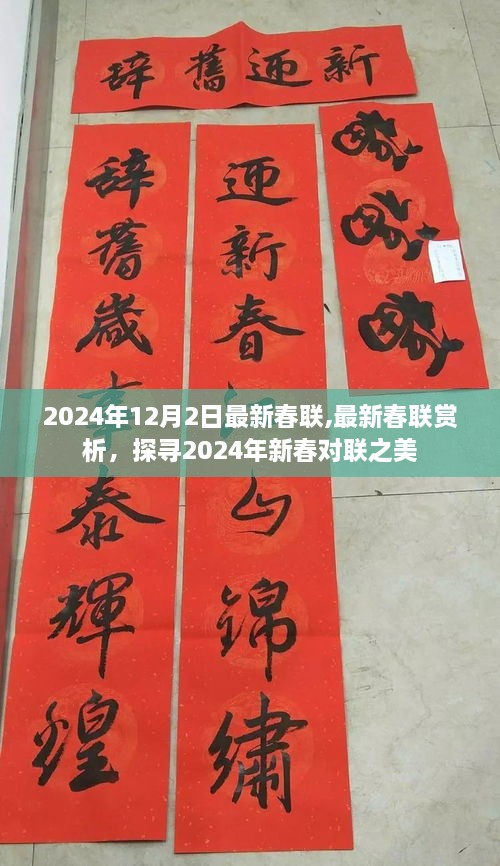 辞舊迎新
辞舊歲事泰輝煌
迎新春江山錦繡
2024年12月2日最新春联,最新春联赏
析，探寻2024年新春对联之美